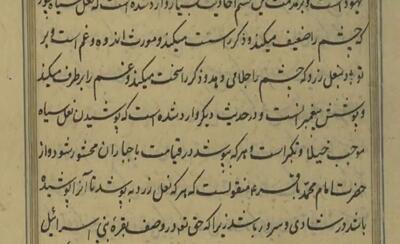 که چشم را ضعیف میکند و ذکر را سست میکند و مورث اندوه و غم است و بر
تو باد نعل زرد که چشم را جلا می دهد و ذکر را سخت میکند و غم را برطرف میکند
و پوشش پیغمبرانست و در حدیث دیگر وارد شده است که پوشیدن نعل سیاه
موجب خیلا و تکبر است و هر که بپوشد در قیامت با جباران محشور شود و از
حضرت امام محمد باقر ع منقولست که هر که نعل زرد بپوشد تا آنرا پوشیده
باشد در شادی و سرور باشد زیرا که حق تعه در وصف بقرهٔ بنی اسرائیل